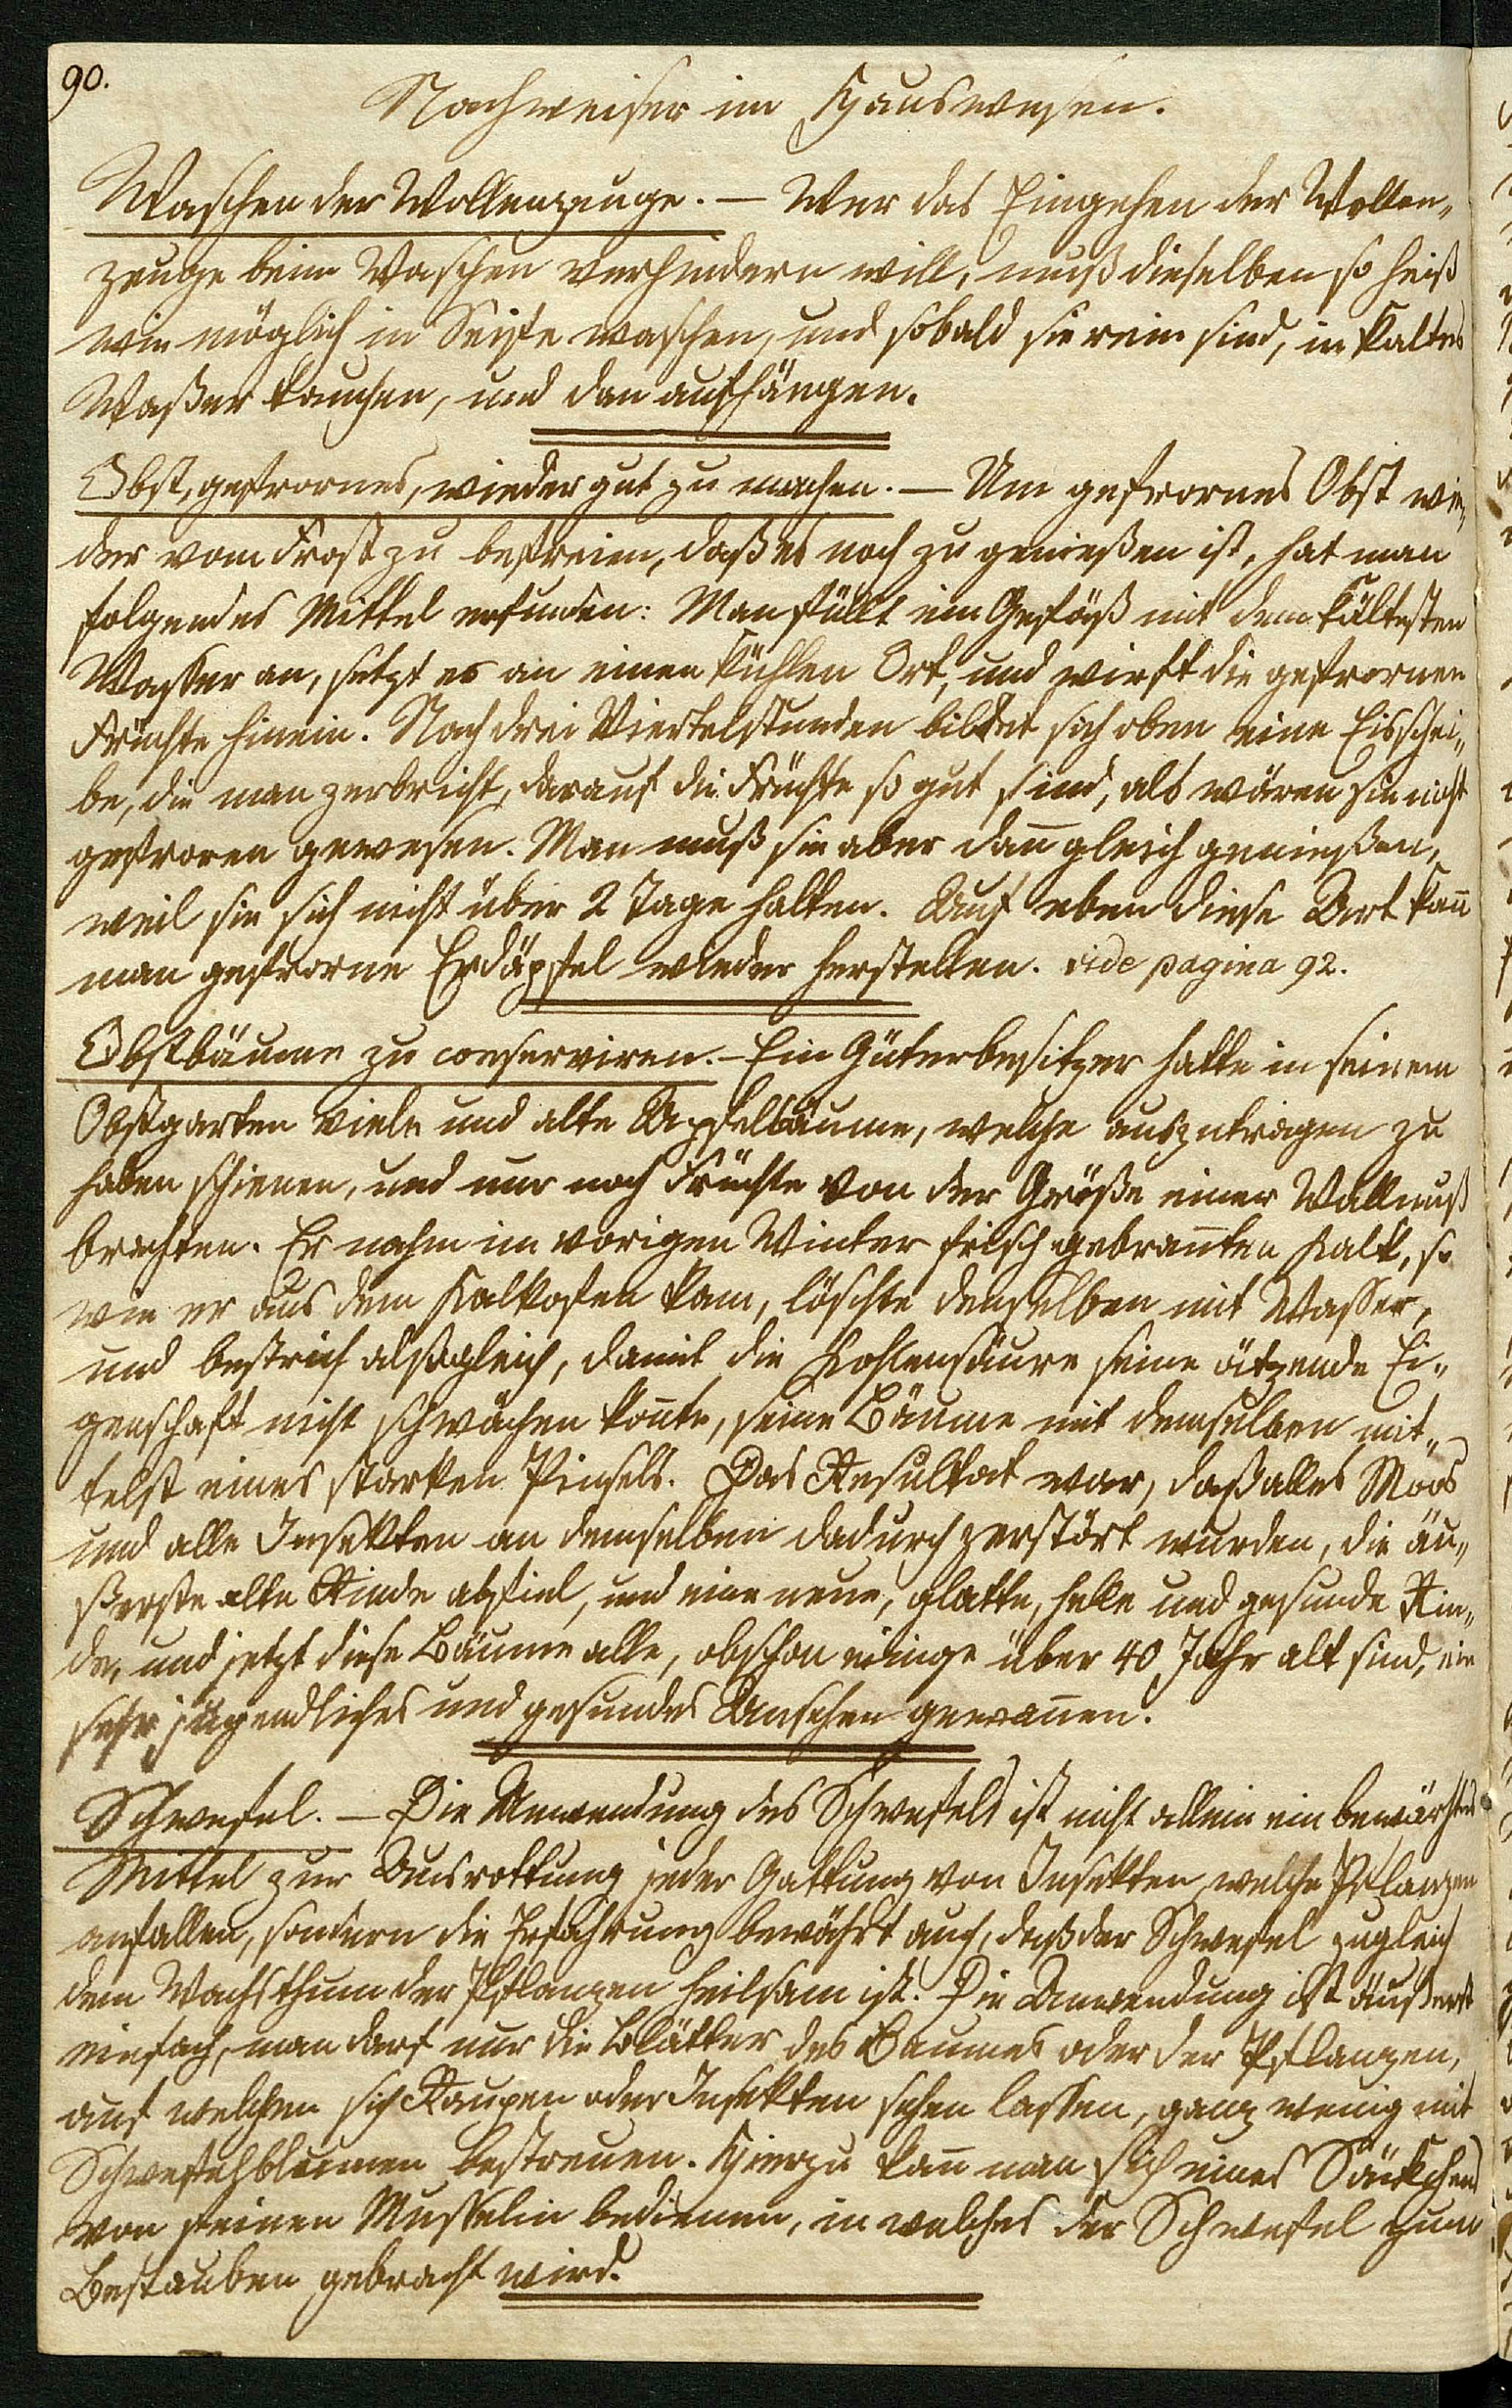 90.
Nachweiser im Hauswesen.
Waschen der Wollenzeuge. — Wer das Eingehen der Wollen„
zeuge beim Waschen verhindern will, muß dieselben so heiß
wie möglich in Seife waschen, und sobald sie rein sind, in kaltes
Waßer tauchen, und dan aufhängen.
Obst, gefrornes, wieder gut zu machen. — Um gefrornes Obst wie„
der vom Frost zu befreien, daß es noch zu genießen ist, hat man
folgendes Mittel erfunden: Man füllt ein Gefäß mit dem kältesten
Wasser an, setzt es an einen kühlen Ort, und wirft die gefrornen
Früchte hinein. Nach drei Viertelstunden bildet sich oben eine Eisschei„
be, die man zerbricht, darauf die Früchte so gut sind, als wären sie nicht
gefroren gewesen. Man muß sie aber dan̄ gleich genießen,
weil sie sich nicht über 2 Tage halten. Auf eben diese Art kan̄
man gefrorne Erdäpfel wieder herstellen. vide pagina 92.
Obstbäume zu conserviren. – Ein Güterbesitzer hatte in seinem
Obstgarten viele und alte Apfelbäume, welche auszutragen zu
haben schienen, und nur noch Früchte von der Größe einer Wallnuß
brachten. Er nahm im vorigen Winter frisch gebran̄ten Kalk, so
wie er aus dem Kalkofen kam, löschte denselben mit Wasser,
und bestrich alsogleich, damit die Kohlensäure seine ätzende Ei„
genschaft nicht schwächen kon̄te, seine Bäume mit demselben mit„
telst eines starken Pinsels. Das Resultat war, daß alles Moos
und alle Insekten an demselben dadurch zerstört wurden, die äu„
ßerste alte Rinde abfiel, und eine neue, glatte, helle und gesunde Rin„
de, und jetzt diese Bäume alle, obschon einige über 40 Jahr alt sind, ein
sehr jugendliches und gesundes Ansehen gewan̄en.
Schwefel. — Die Anwendung des Schwefels ist nicht allein ein bewährtes
Mittel zur Ausrottung jeder Gattung von Insekten, welche Pflanzen
anfallen, sondern die Erfahrung bewährt auch, daß der Schwefel zugleich
dem Wachsthum der Pflanzen heilsam ist. Die Anwendung ist äußerst
einfach, man darf nur die Blätter des Baumes oder der Pflanzen,
auf welchen sich Raupen oder Insekten sehen lassen, ganz wenig mit
Schwefelblumen bestreuen. Hierzu kan̄ man sich eines Säckchens
von feinen Musselin bedienen, in welches der Schwefel zum
Bestauben gebracht wird.